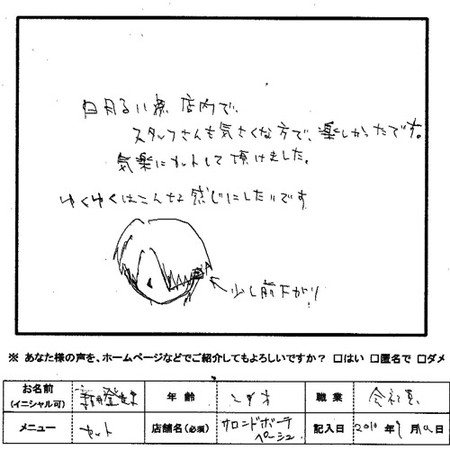 明るい 店内で、
スタッフさんも気さくな方で、楽しかったです。
気楽にカットして頂けました。
ゆくゆくはこんな感じにしたいです
←少し前下がり
※ あなた様の声を、ホームページなどでご紹介してもよろしいですか？ □はい □匿名で □ダメ
お名前 (イニシャル可) 年齢 職業 会社員
メニュー カット 店舗名(必須) サロンドボーテ ペーシュ 記入日 2010年 月 日